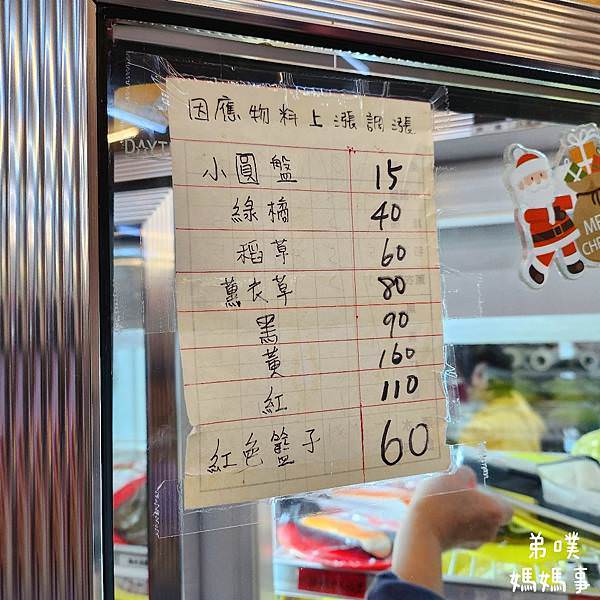 因應物料上漲調漲
小圓盤 15
綠橘 40
稻草 60
薰衣草 80
黑 90
黃 160
紅 110
紅色籃子 60
DAYT
ME
CHR
弟噗
媽媽事